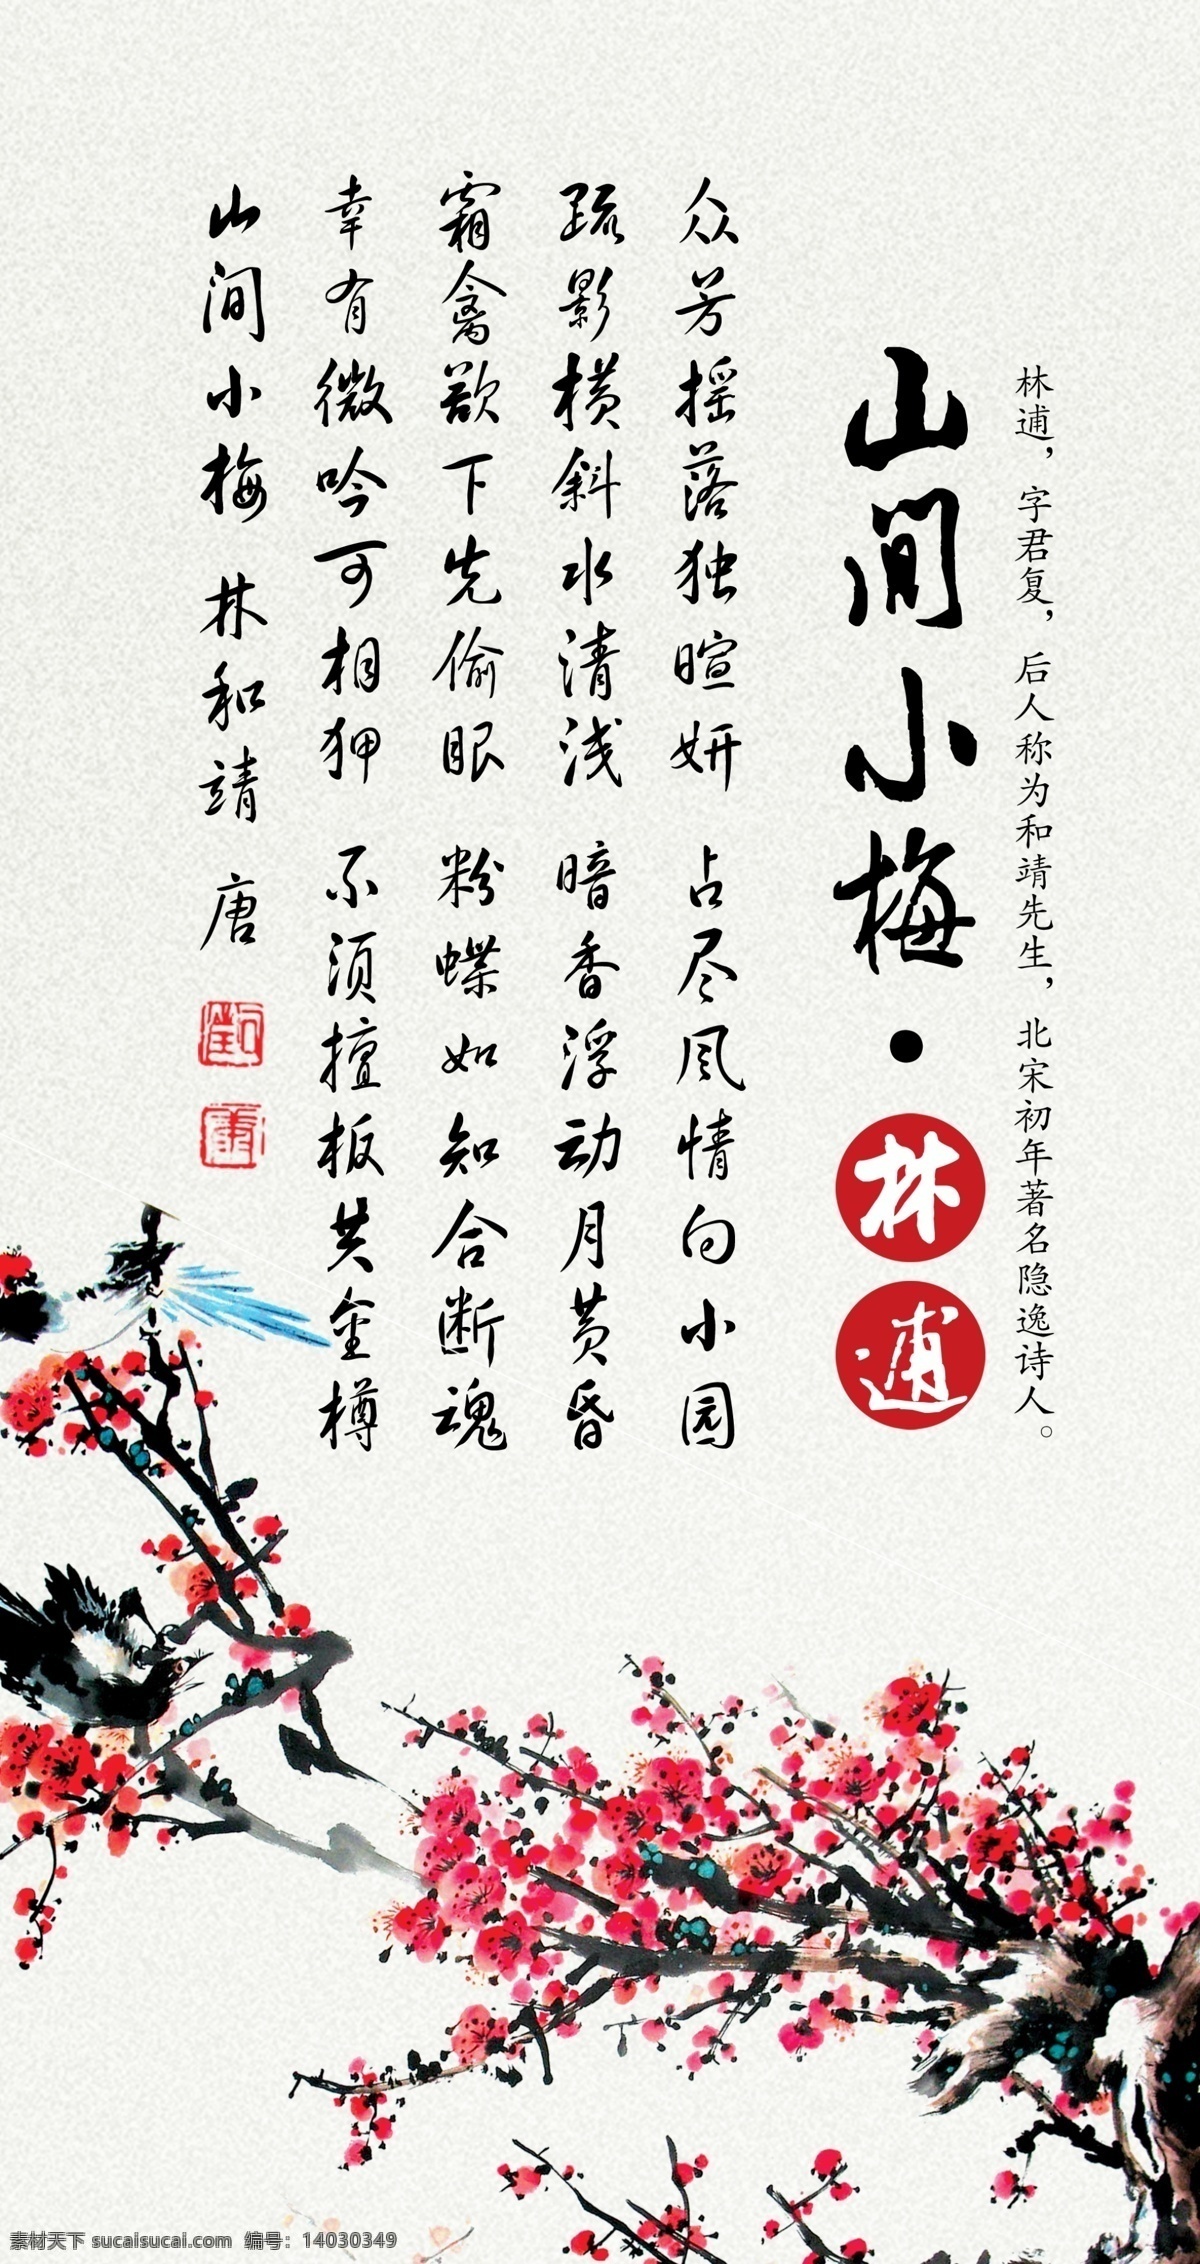 林逋，字君复，后人称为和靖先生，北宋初年著名隐逸诗人。
山间小梅·林逋
众芳摇落独暄妍 占尽风情向小园
疏影横斜水清浅 暗香浮动月黄昏
霜禽欲下先偷眼 粉蝶如知合断魂
幸有微吟可相狎 不须擅板共金樽
山间小梅 林和靖 唐
素材天下 sucaisucai.com 编号：14030349